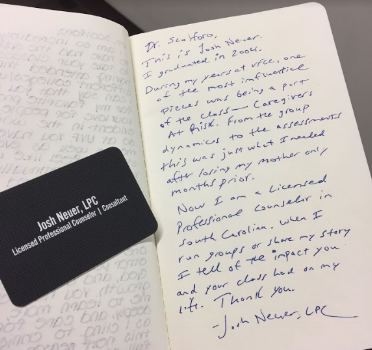 Dr. Scalforo,
This is Josh Neuer.
I graduated in 2004.
During my years at VFCC, one
of the most influential
pieces was being a part
of the class — Caregivers
At Risk. From the group
dynamics to the assessments
this was just what I needed
after losing my mother only
months prior.
Now I am a Licensed
Professional Counselor in
South Carolina. When I
run groups or share my story
I tell of the impact you
and your class had on my
life. Thank you.
- Josh Neuer, LPC
Josh Neuer, LPC
Licensed Professional Counselor | Consultant